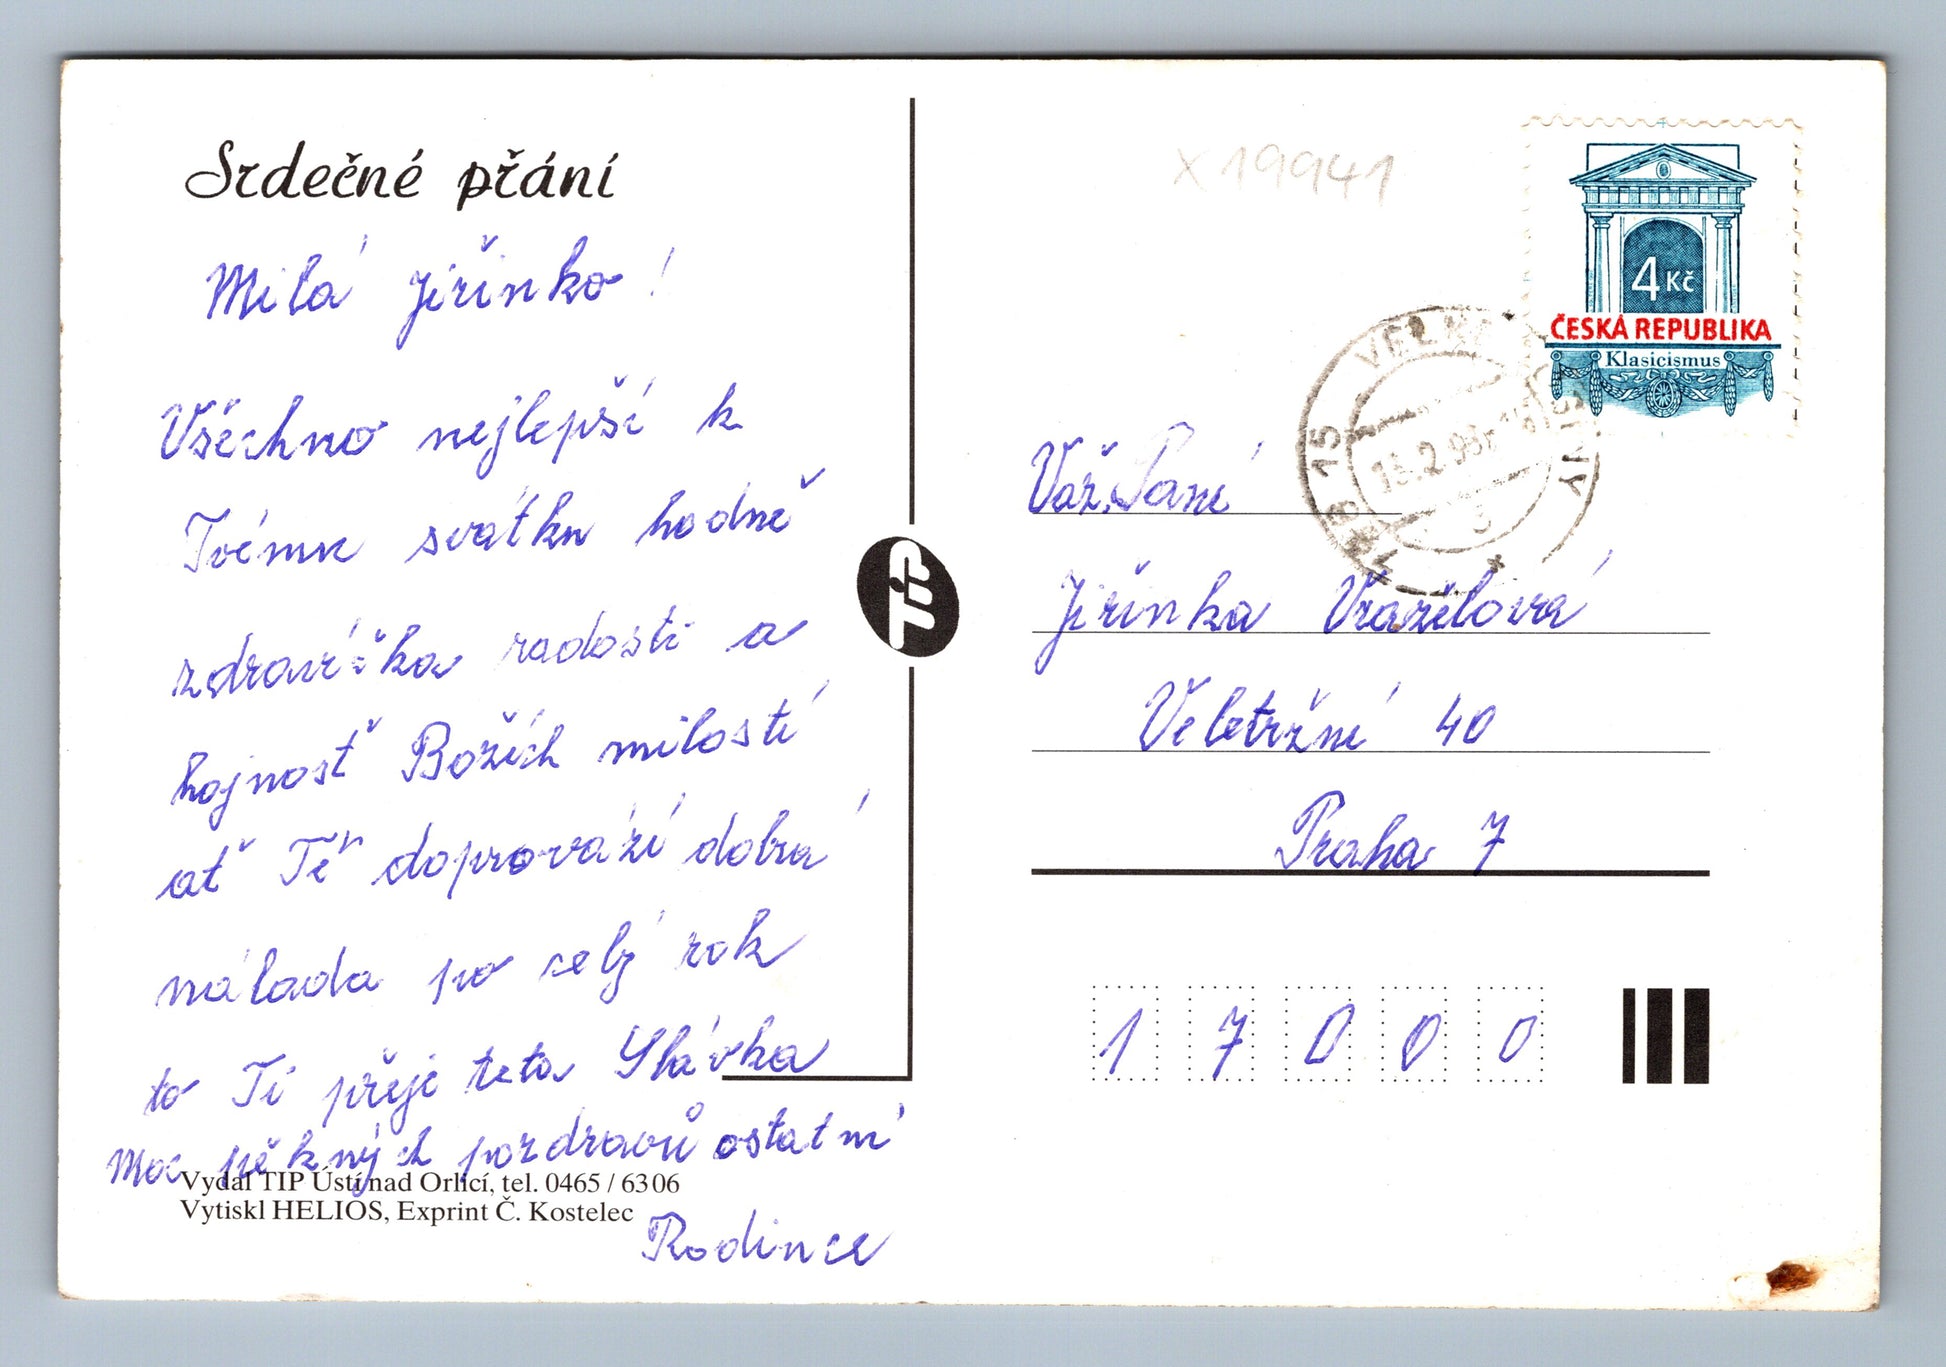 Srdečné přání
Milá Jiřinko!
Všechno nejlepší k
Tvému svátku hodně
zdravíčka radosti a
hojnost Božích milostí
ať Tě doprovází dobrá
nálada po celý rok
to Ti přeje teta Slávka
Moc pěkných pozdravů ostatní
Rodince
Vydal TIP Ústí nad Orlicí, tel. 0465 / 6306
Vytiskl HELIOS, Exprint Č. Kostelec
TIP
X 19941
4 Kč
ČESKÁ REPUBLIKA
Klasicismus
15
Váž. Paní
Jiřinka Vrazilová
Veletržní 40
Praha 7
1 7 0 0 0